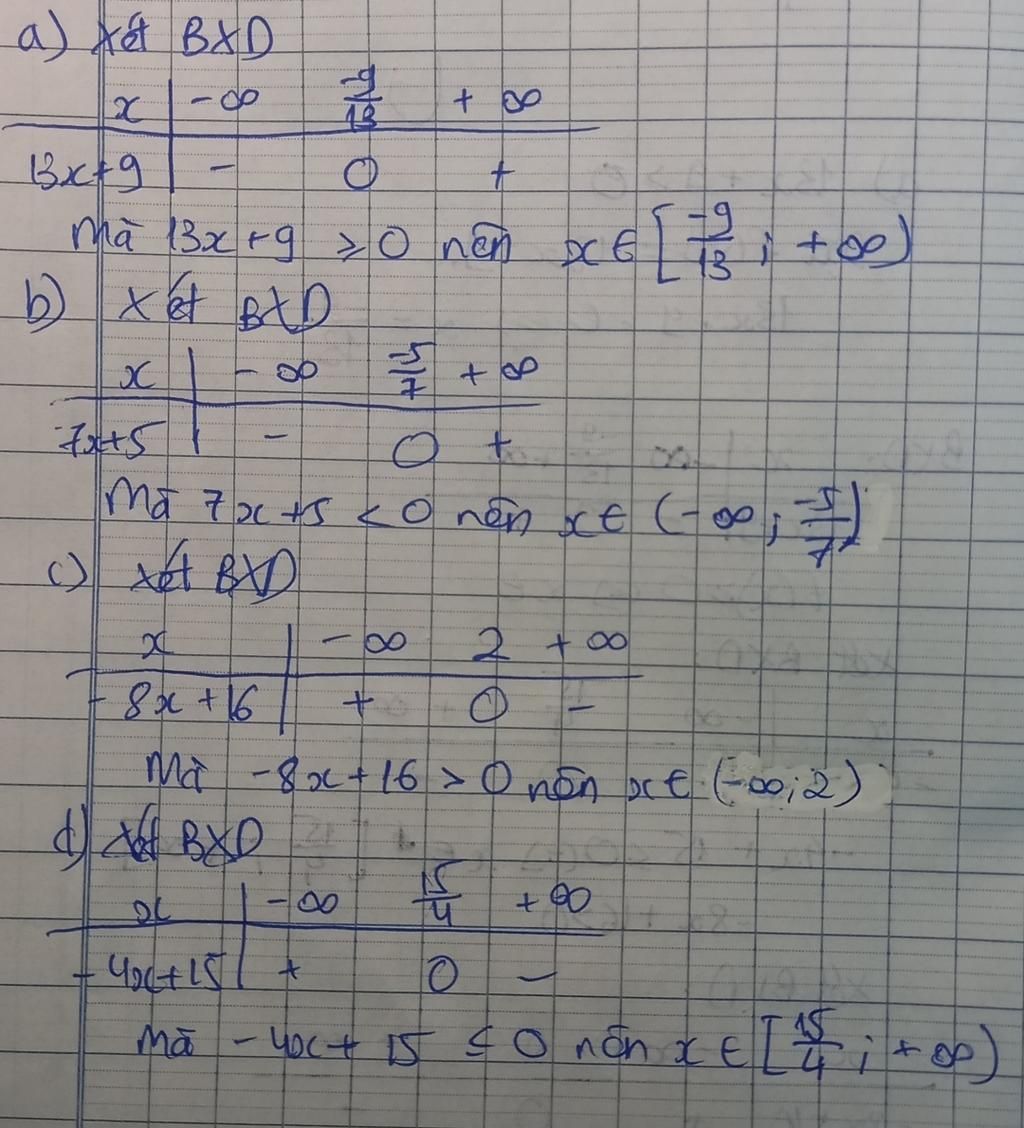 a) Xét BXD
x | -∞ -9/13 +∞
13x+9 | - 0 +
Mà 13x+9 ≥ 0 nên x ∈ [-9/13 ; +∞)
b) Xét BXD
x | -∞ -5/7 +∞
7x+5 | - 0 +
Mà 7x+5 < 0 nên x ∈ (-∞ ; -5/7)
c) Xét BXD
x | -∞ 2 +∞
-8x+16 | + 0 -
Mà -8x+16 > 0 nên x ∈ (-∞; 2)
d) Xét BXD
x | -∞ 15/4 +∞
-4x+15 | + 0 -
Mà -4x+15 ≤ 0 nên x ∈ [15/4 ; +∞)